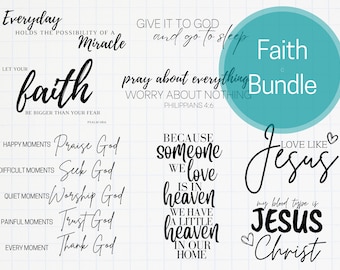 Everyday
HOLDS THE POSSIBILITY OF A
Miracle
GIVE IT TO GOD
and go to sleep
Faith
Bundle
LET YOUR
faith
BE BIGGER THAN YOUR FEAR
pray about everything
WORRY ABOUT NOTHING
PHILIPPIANS 4:6
HAPPY MOMENTS Praise God
DIFFICULT MOMENTS Seek God
QUIET MOMENTS Worship God
PAINFUL MOMENTS Trust God
EVERY MOMENT Thank God
BECAUSE
someone
WE love
IS IN
heaven
WE HAVE
A LITTLE
heaven
IN OUR
HOME
LOVE LIKE
Jesus
my blood type is
JESUS
Christ